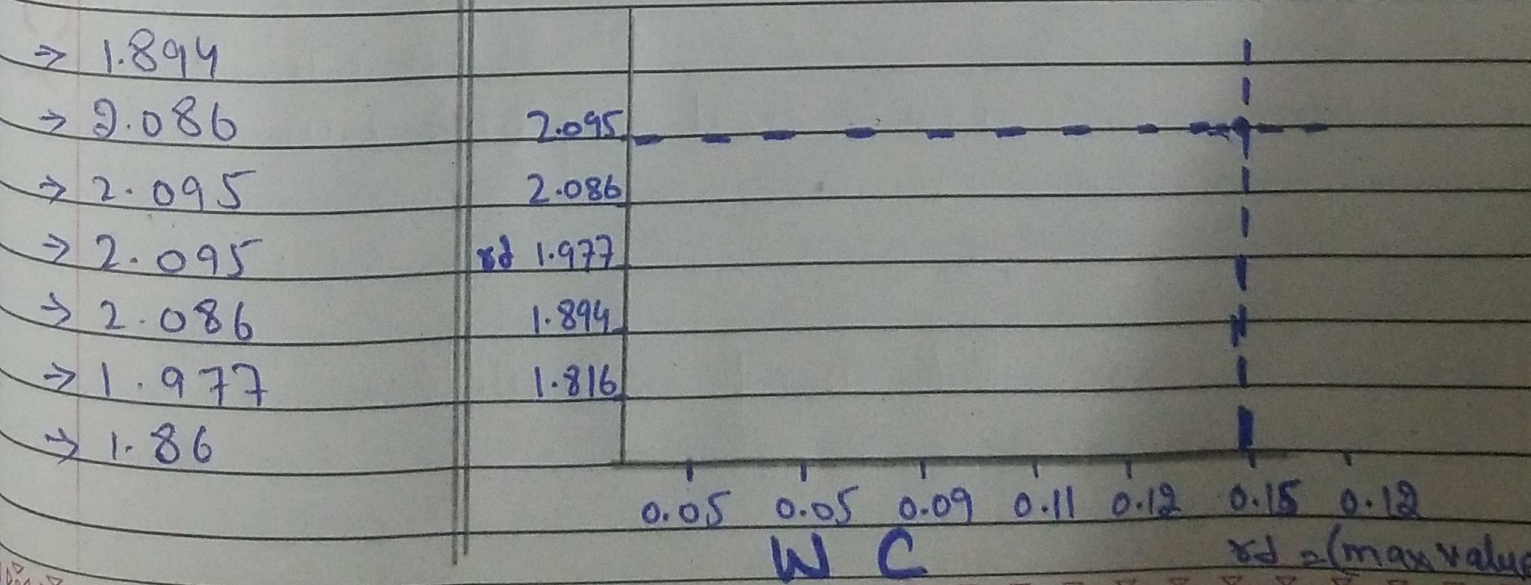 ⇒ 1.894
⇒ 2.086
⇒ 2.095
⇒ 2.095
⇒ 2.086
⇒ 1.977
⇒ 1.86
2.095
2.086
γd 1.977
1.894
1.816
0.05 0.05 0.09 0.11 0.12 0.15 0.12
W C
γd = (max value